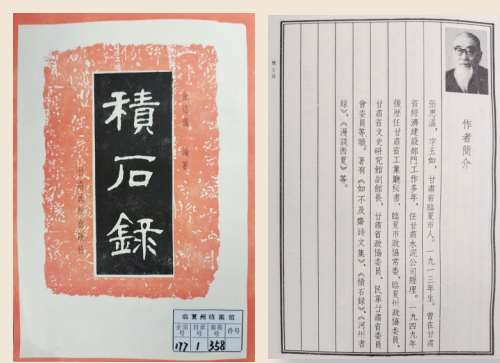 張思温 編纂
積石録
临夏州档案馆
全宗号 目录号 案卷号 件号
177 1 358
作者簡介
張思温，字玉如，甘肅省臨夏市人。一九一三年生。曾在甘肅
省經濟建設部門工作多年，任甘肅水泥公司經理。一九四九年
後歷任甘肅省工業廳秘書、臨夏市政協常委、臨夏州政協委員、
甘肅省文史研究館副館長，甘肅省政協委員、民革甘肅省委員
會委員等職。著有《如不及齋詩文集》、《積石録》、《河州書
録》、《漫談西夏》等。